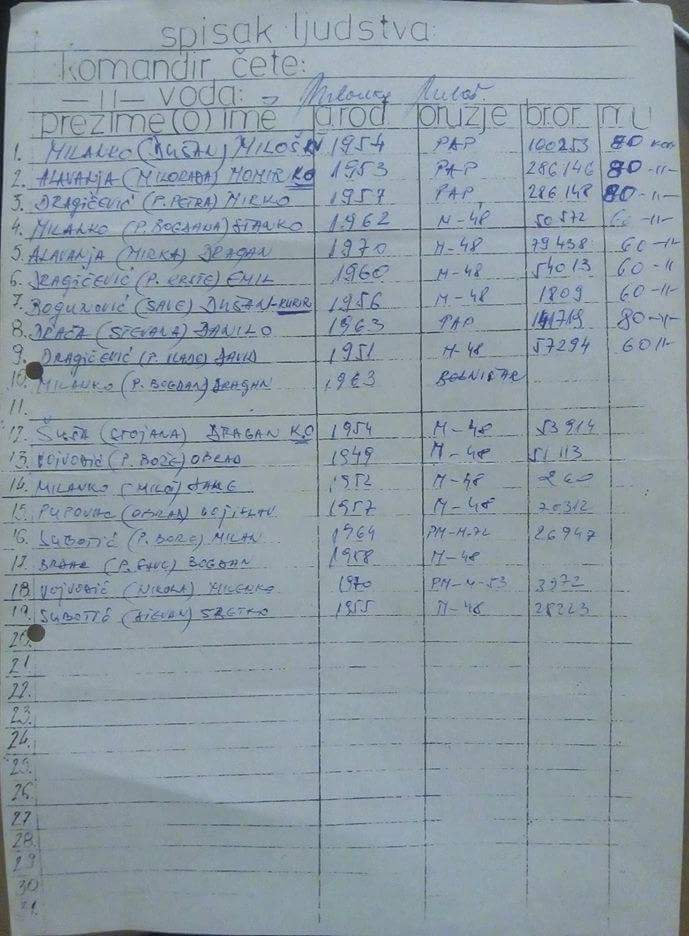 spisak ljudstva:
komandir čete:
—11— voda: Milanko Miloš
prezime(o)ime g.rod. oružje br.or. MU
1. MILANKO (DUŠAN) MILOŠ KV 1954 PAP 160253 80 kom
2. ALAVANJA (MILORADA) MOMIR KO 1953 PAP 286146 80 -11-
3. DRAGIČEVIĆ (P. PETRA) MIRKO 1957 PAP 286148 80 -11-
4. MILANKO (P. BOGDANA) STANKO 1962 M-48 50572 60 -11-
5. ALAVANJA (MIRKA) DRAGAN 1970 M-48 79438 60 -11-
6. DRAGIČEVIĆ (P. KRSTE) EMIL 1960 M-48 54013 60 -11
7. BOGUNOVIĆ (SAVE) DUŠAN-KURIR 1956 M-48 1809 60 -11-
8. DRAČA (STEVANA) DANILO 1963 PAP 80 -11-
9. DRAGIČEVIĆ (P. ILADE) DAVID 1951 M-48 57294 60 11-
10. MILANKO (P. BOGDAN) DRAGAN 1963 BOLNIČAR
11.
12. ŠUŠA (STOJANA) DRAGAN KO 1954 M-48 53914
13. VOJVODIĆ (P. BOŽE) OBRAD 1949 M-48 51113
14. MILANKO (MILOŠ) 1952 M-48 260
15. PUPOVAC (OBRAD) 1957 M-48 70312
16. SUBOTIĆ (P. ĐORĐ) MILAN 1964 PM-M-72 26947
17. (P. SAVE) BOGDAN 1958 M-48
18. VOJVODIĆ (NIKOLA) MILENKO 1970 PM-M-53 3972
19. SUBOTIĆ (STEVAN) SRETKO 1955 M-48 28223
20.
21
22.
23.
24.
25.
26.
27
28.
29
30
31.